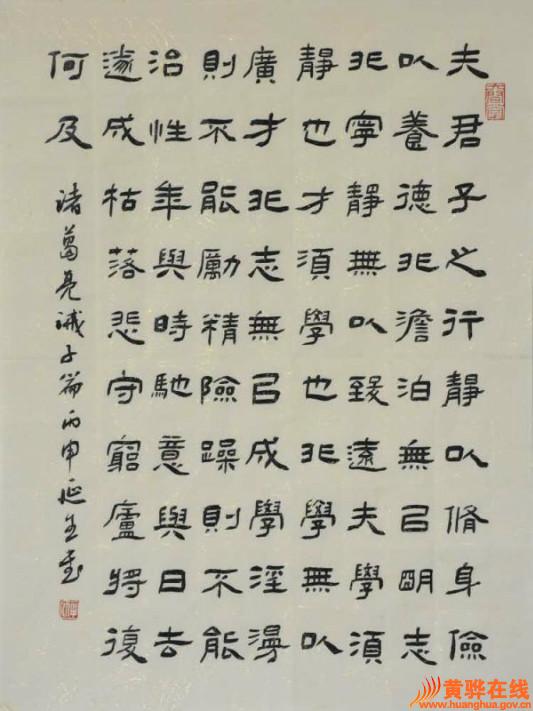 夫君子之行靜以脩身儉
以養德非澹泊無㠯明志
非寧靜無以致遠夫學須
靜也才須學也非學無以
廣才非志無㠯成學淫漫
則不能勵精險躁則不能
治性年與時馳意與日去
遂成枯落悲守窮廬將復
何及
诸葛亮诫子篇丙申延生書
黄骅在线
www.huanghua.gov.cn